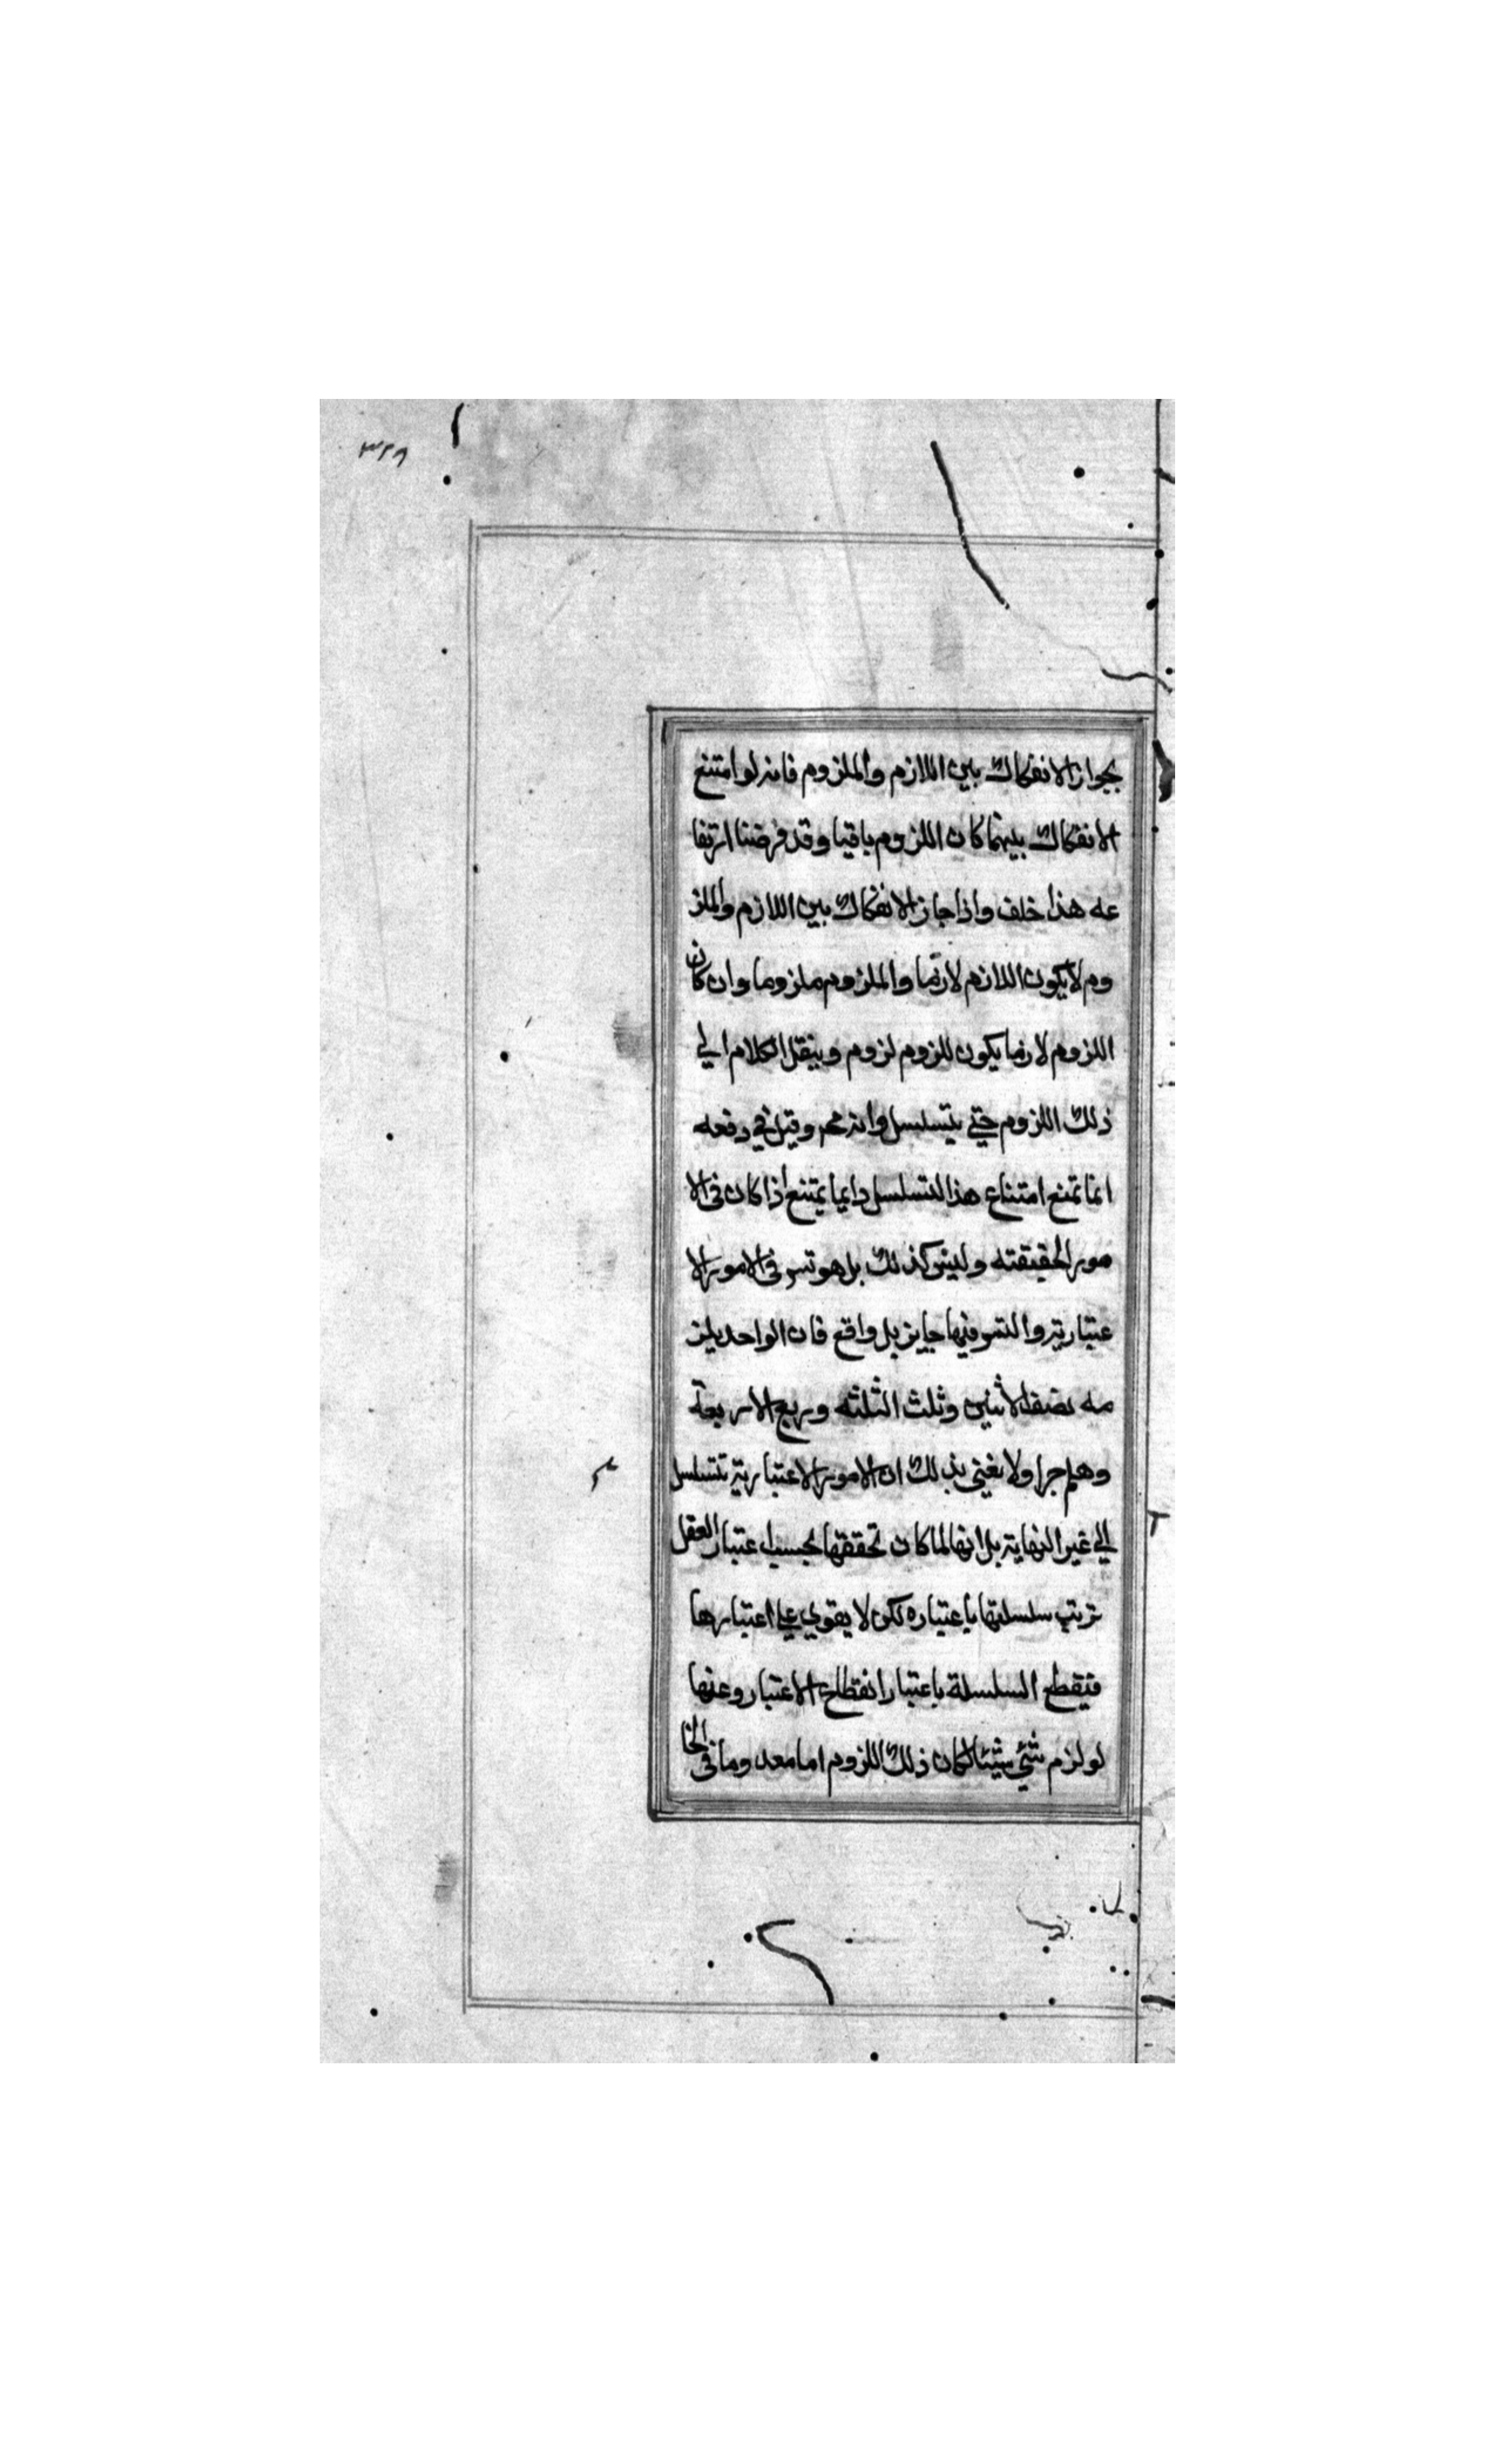 ٣٢٨
بجواز الانفكاك بين اللازم والملزوم فانه لو امتنع
الانفكاك بينهما كان اللزوم باقيا وقد فرضنا ارتفا
عه هذا خلف واذا جاز الانفكاك بين اللازم والملز
وم لا يكون اللازم لازما والملزوم ملزوما وان كان
اللزوم لازما يكون للزوم لزوم وينقل الكلام الي
ذلك اللزوم حتي يتسلسل وانه مح وقيل في دفعه
انما تمنع امتناع هذا التسلسل دايما يمتنع اذا كان في الا
مور الحقيقته وليس كذلك بل هو تس في الامور الا
عتباريته والتمو فيها جايز بل واقع فان الواحد يلز
مه نصف الاثنين وثلث الثلثه وربع الاربعة
وهلم جرا ولا نغني بذلك ان الامور الاعتباريته تتسلسل
الي غير النهايته بل انها لما كان تحققها بحسب اعتبار العقل
ترتب سلسلتها باعتباره لكن لا يقوي علي اعتبارها
فيقطع السلسلة باعتبار انقطاع الاعتبار وعنها
لو لزم شئي شيئا لكان ذلك اللزوم اما معد وما في الخا